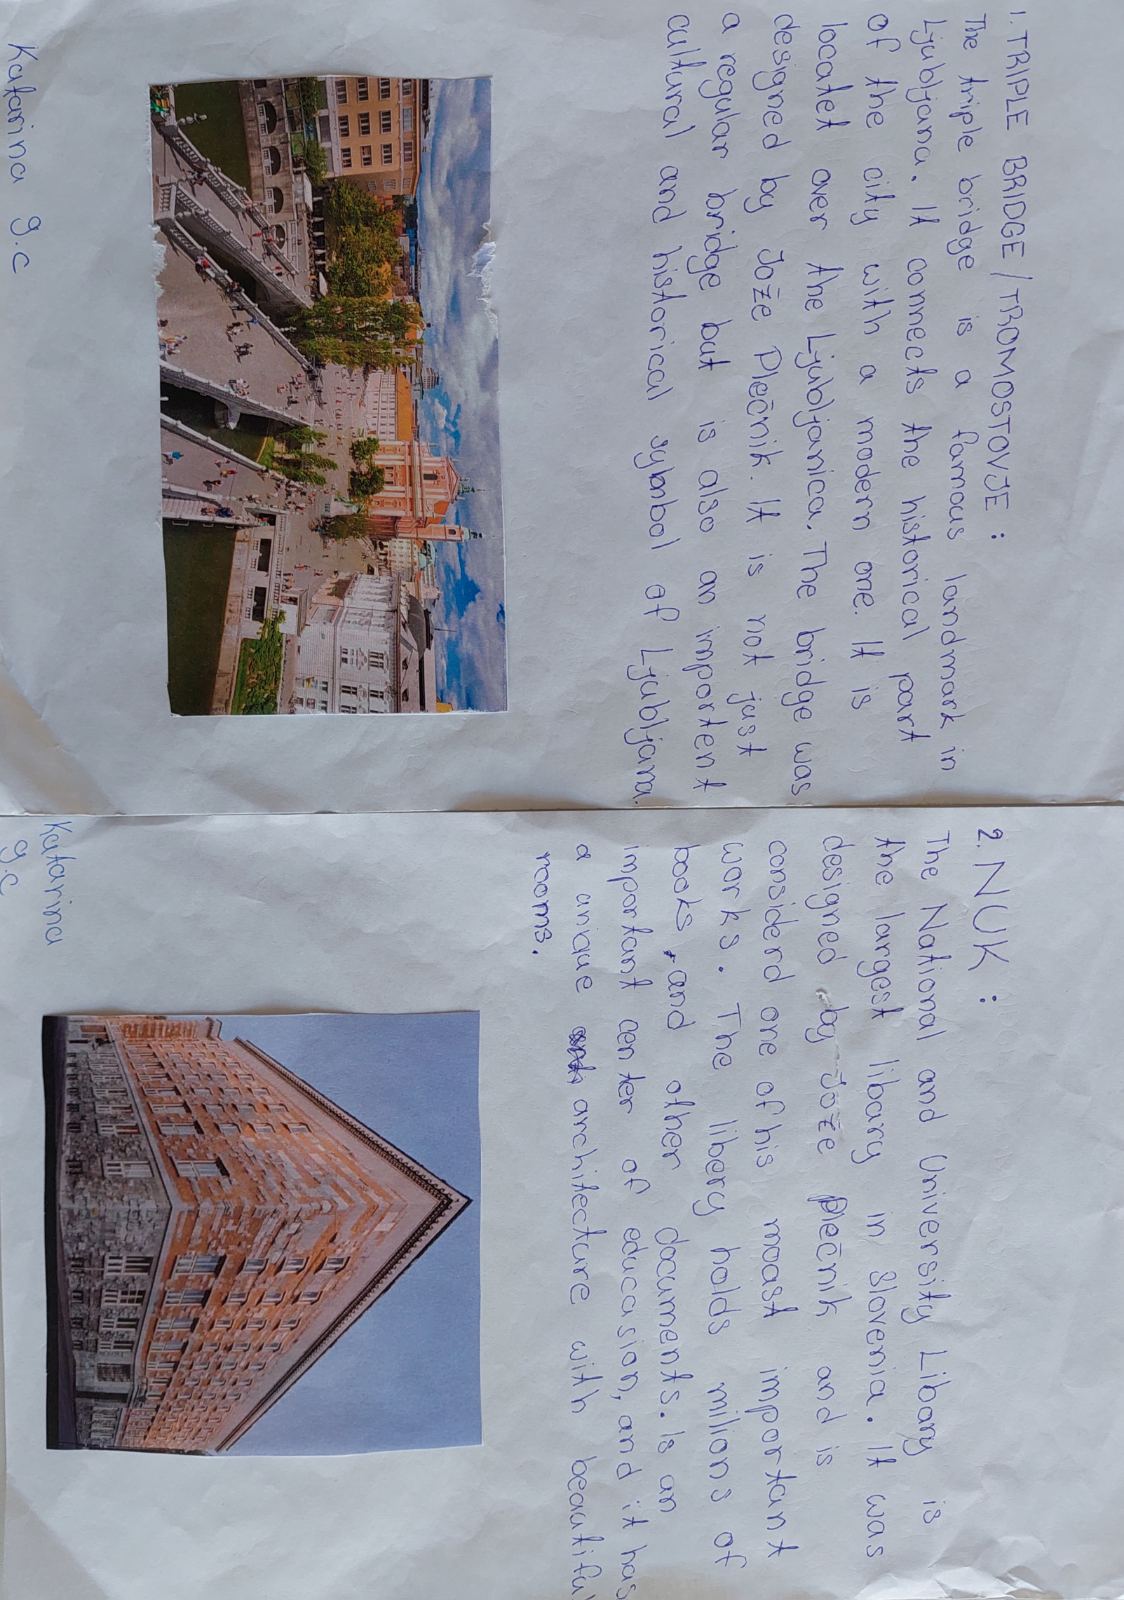 1. TRIPLE BRIDGE/TROMOSTOVJE:
The triple bridge is a famous landmark in
Ljubljana. It connects the historical part
of the city with a modern one. It is
locatet over the Ljubljanica. The bridge was
designed by Jože Plečnik. It is not just
a regular bridge but is also an importent
cultural and historical symbol of Ljubljana.
Katarina 9.c
2. NUK:
The National and University Libary is
the largest libary in Slovenia. It was
designed by Jože Plečnik and is
considerd one of his moast important
works. The libery holds milions of
books, and other documents. Is an
important center of educasion, and it has
a unique architecture with beautiful
rooms.
Katarina
9.c